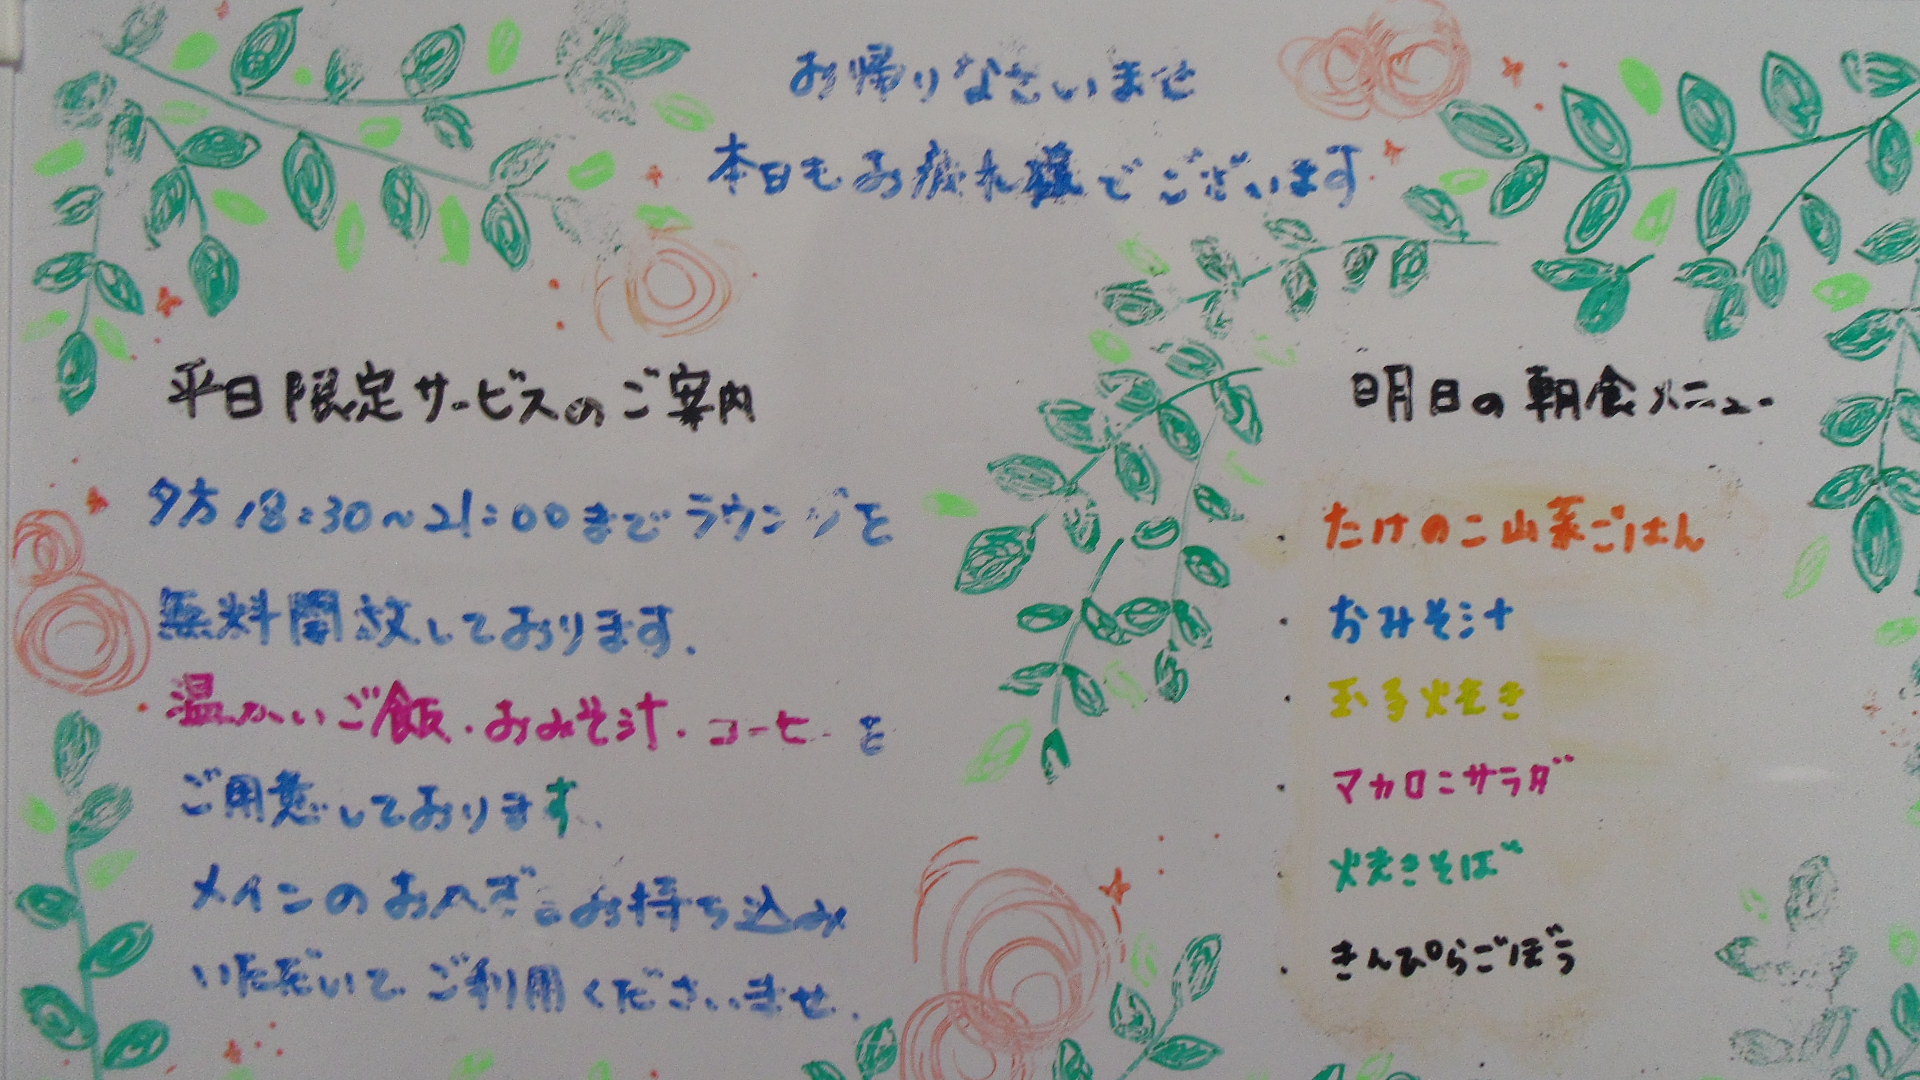 お帰りなさいませ
本日もお疲れ様でございます
平日限定サービスのご案内
夕方18:30~21:00までラウンジを
無料開放しております.
温かいご飯・おみそ汁・コーヒーを
ご用意しております.
メインのおかずをお持ち込み
いただいてご利用くださいませ.
明日の朝食メニュー
・たけのこ山菜ごはん
・おみそ汁
・玉子焼き
・マカロニサラダ
・焼きそば
・きんぴらごぼう